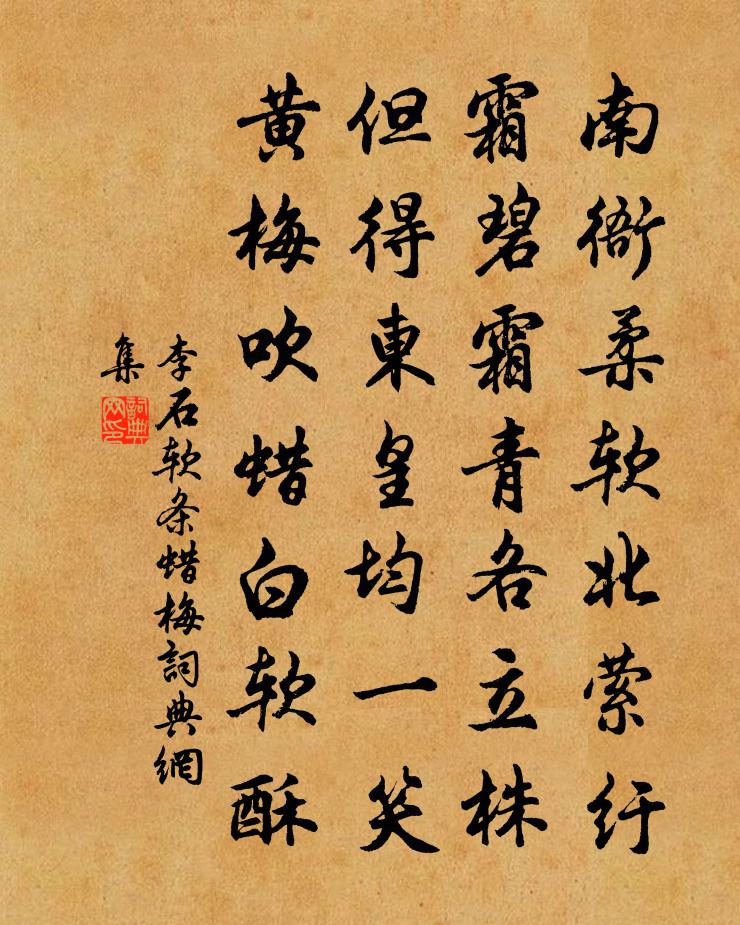 南衙柔软北萦纡
霜碧霜青各立株
但得東皇均一笑
黄梅吹蜡白软酥
李石软条蜡梅詞典網
集
詞典网印